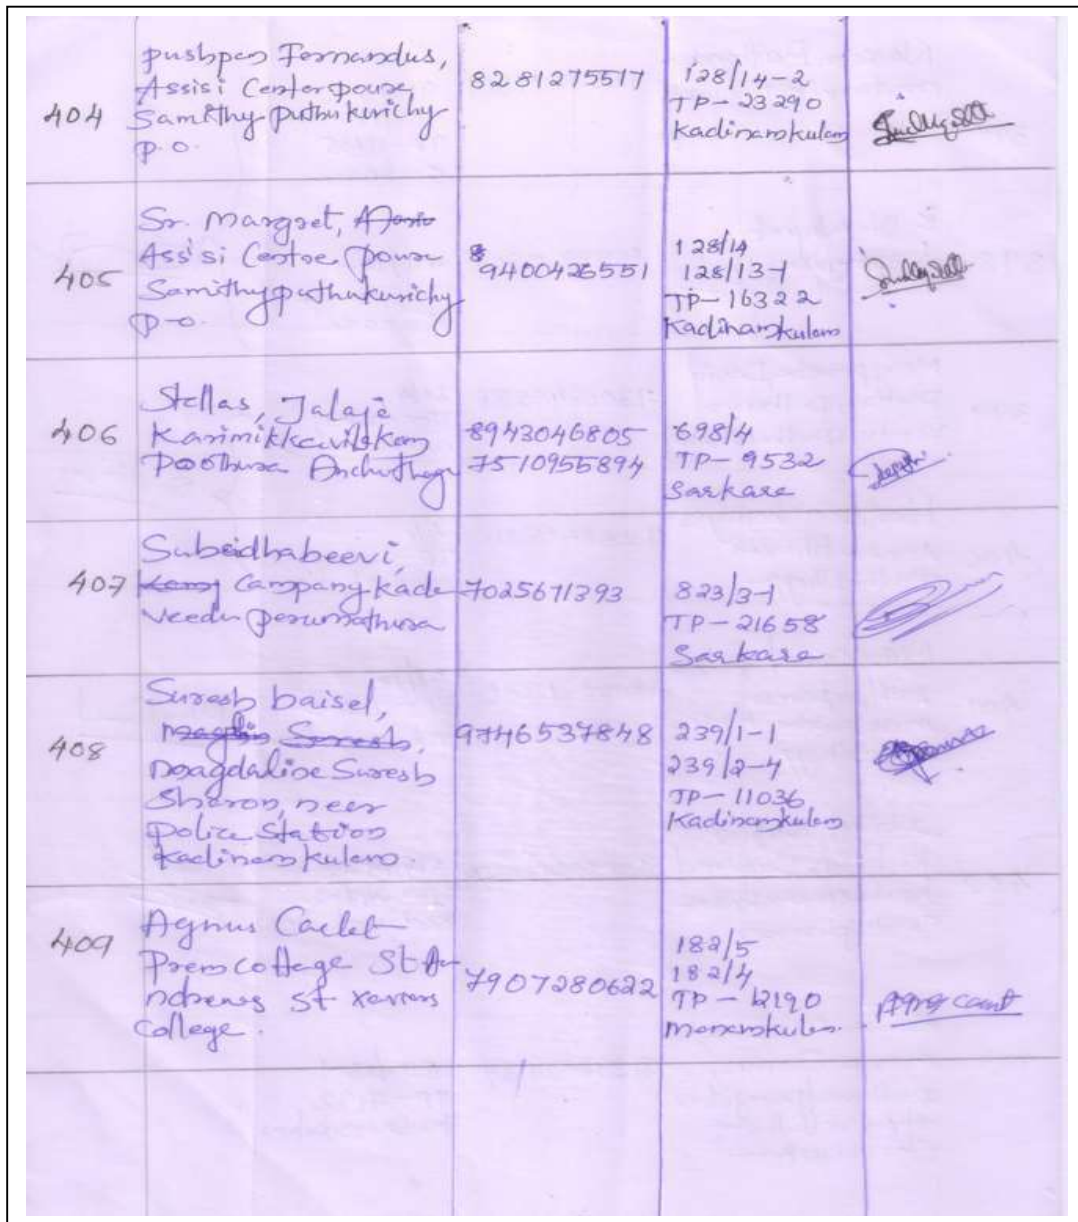 404
pushpan Fernandus,
Assisi Center poura
Samithy puthukurichy
p.o.
8281275517
128/14-2
TP-23290
Kadinamkulam
405
Sr. Margret,
Assisi Centre poura
Samithy puthukurichy
p-o.
9400426551
128/14
128/13-1
TP-16322
Kadinamkulam
406
Stellas, Jalaja
Karimikkavilakam
Poothura Anchuthengu
8943046805
7510955894
698/4
TP-9532
Sarkara
407
Subaidhabeevi,
Campany kada
veedu perumathura
7025671393
823/3-1
TP-21658
Sarkara
408
Suresh baisel,
Suresh,
Magdaline Suresh
Sharon, near
police station
Kadinamkulam.
9746537848
239/1-1
239/2-4
TP-11036
Kadinamkulam
409
Agnus Caclet
Prem cottage St A
ndrews St xaviers
College.
7907280622
182/5
182/4
TP-12190
Menamkulam.